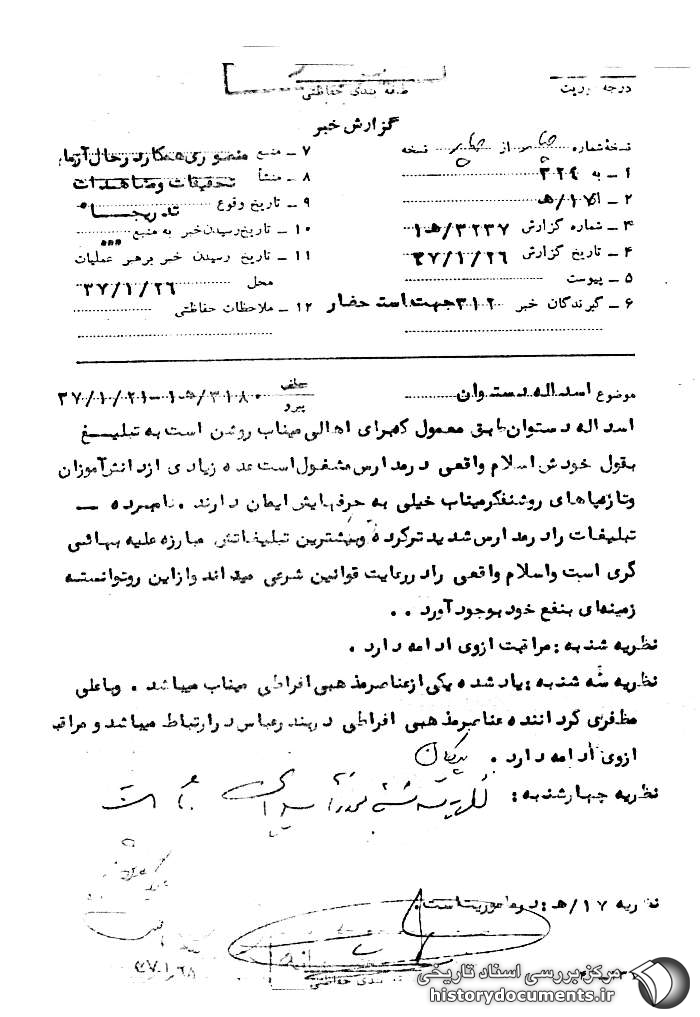 درجه فوریت
طبقه بندی حفاظتی
گزارش خبر
نسخهٔ شماره از نسخه
۱ ــ به ۳۲۴
۲ ــ از ۱۷/هـ
۳ ــ شماره گزارش ۳۲۳۷/۱هـ
۴ ــ تاریخ گزارش ۳۷/۱/۲۶
۵ ــ پیوست
۶ ــ گیرندگان خبر ۳۱۲جهت استحضار
۷ ــ منبع منصوری همکارد رحال آزما
۸ ــ منشأ تحقیقات و مشاهدات
۹ ــ تاریخ وقوع تدریجا
۱۰ ــ تاریخ رسیدن خبر به منبع
۱۱ ــ تاریخ رسیدن خبر برهبر عملیات
محل ۳۷/۱/۲۶
۱۲ ــ ملاحظات حفاظتی
موضوع اسداله دستوان
عطف
پیرو
۳۱۸۰/۱هـ-۳۷/۱/۲۱
اسداله دستوان طبق معمول که برای اهالی میناب روشن است به تبلیغ
بقول خودش اسلام واقعی درمدارس مشغول است عده زیادی ازدانش آموزان
وتازه پاهای روشنفکرمیناب خیلی به حرفهایش ایمان دارند . نامبرده ــ
تبلیغات رادرمدارس شدیدترکرده وبیشترین تبلیغاتش مبارزه علیه بهائی
گری است واسلام واقعی رادررعایت قوانین شرعی میداند وازاین روتوانسته
زمینه‌ای بنفع خودبوجودآورد . .
نظریه شنبه : مراقبت ازوی ادامه دارد .
نظریه سه شنبه : یادشده یکی ازعناصرمذهبی افراطی میناب میباشد . وباعلی
مظفری گرداننده عناصرمذهبی افراطی دربندرعباس درارتباط میباشد و مراقبت
ازوی ادامه دارد .
نظریه چهارشنبه : نظریه سه شنبه مورد تأیید است
نظریه ۱۷/هـ : درماموریت است
طبقه بندی حفاظتی
مرکز بررسی اسناد تاریخی
historydocuments.ir